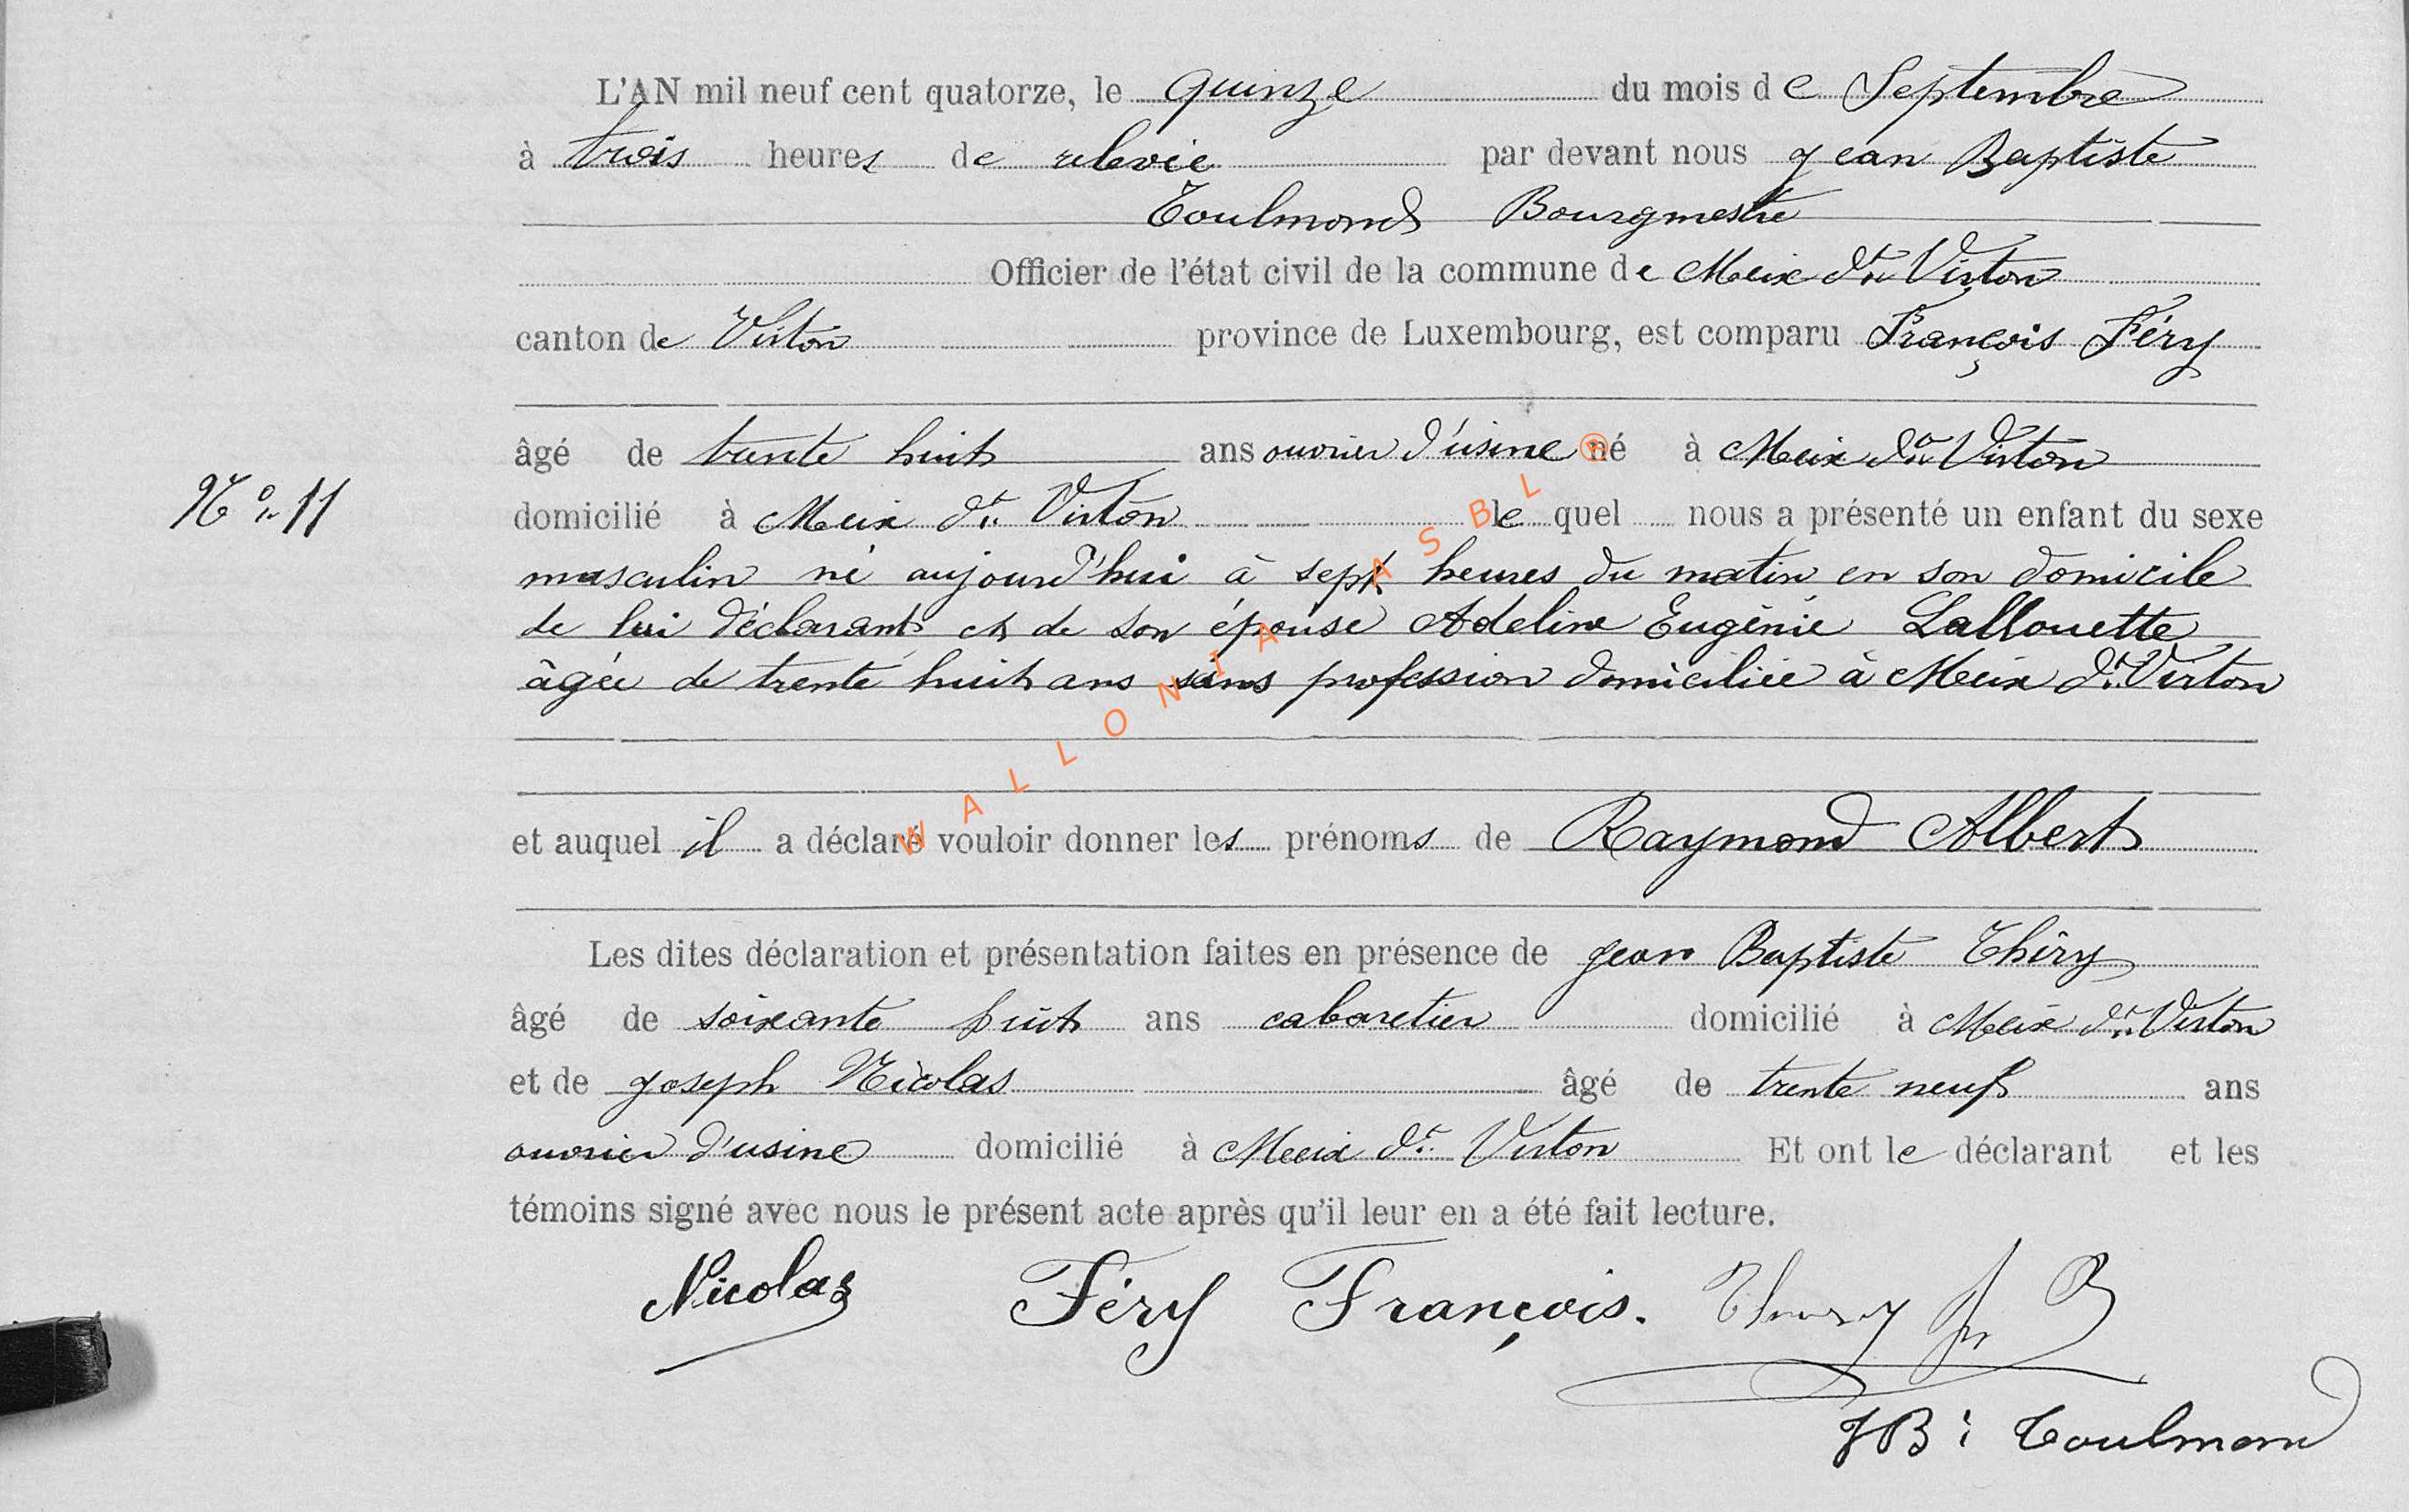 L'AN mil neuf cent quatorze, le quinze du mois de Septembre
à trois heures de relevée par devant nous Jean Baptiste
Toulmond Bourgmestre
Officier de l'état civil de la commune de Meix dt Virton
canton de Virton province de Luxembourg, est comparu François Féry
âgé de trente huit ans ouvrier d'usine né à Meix dt Virton
No 11
domicilié à Meix dt Virton lequel nous a présenté un enfant du sexe
masculin né aujourd'hui à sept heures du matin en son domicile
de lui déclarant et de son épouse Adeline Eugénie Lallouette
âgée de trente huit ans sans profession domiciliée à Meix dt Virton
et auquel il a déclaré vouloir donner les prénoms de Raymond Albert
Les dites déclaration et présentation faites en présence de Jean Baptiste Thiry
âgé de soixante huit ans cabaretier domicilié à Meix dt Virton
et de Joseph Nicolas âgé de trente neuf ans
ouvrier d'usine domicilié à Meix dt Virton Et ont le déclarant et les
témoins signé avec nous le présent acte après qu'il leur en a été fait lecture.
Nicolas Féry François. Thiry J B
JB Toulmond
WALLONIA ASBL ®